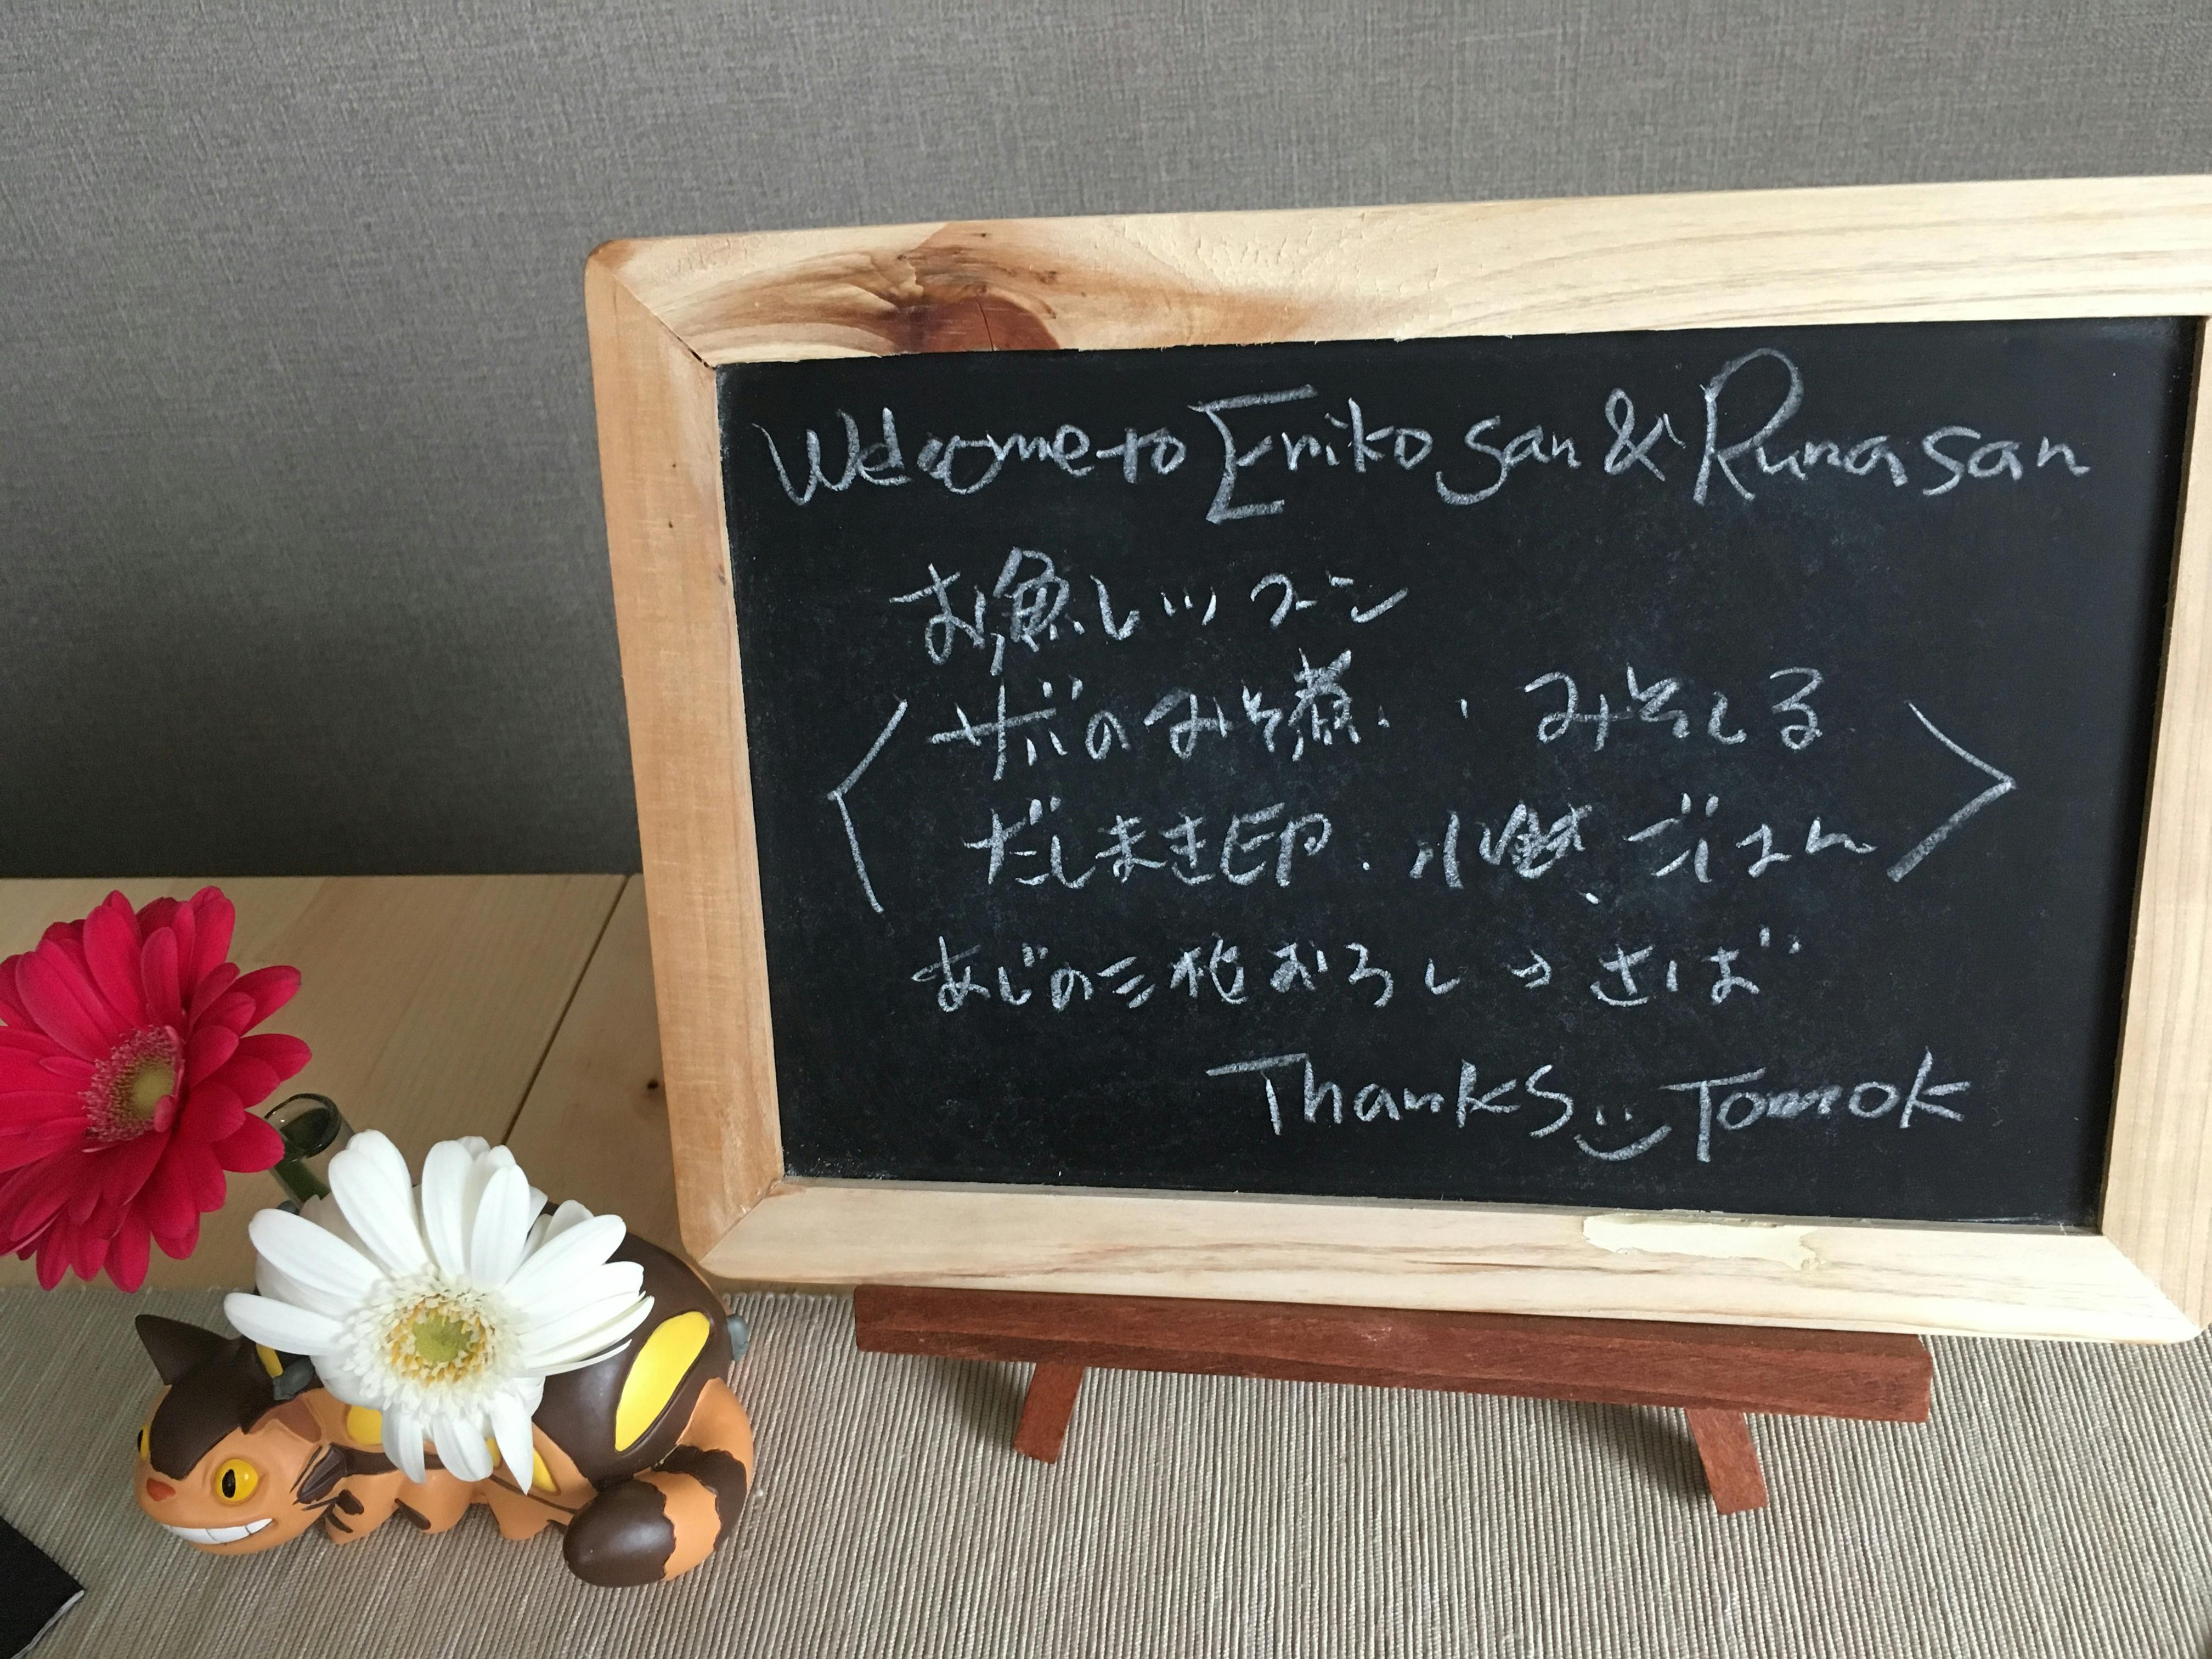 Welcome to Eriko san & Runa san
お魚レッスン
サバのみそ煮 、 みそしる
だしまき卵、小鉢、ごはん
あじの三枚おろし → さば
Thanks Tomok